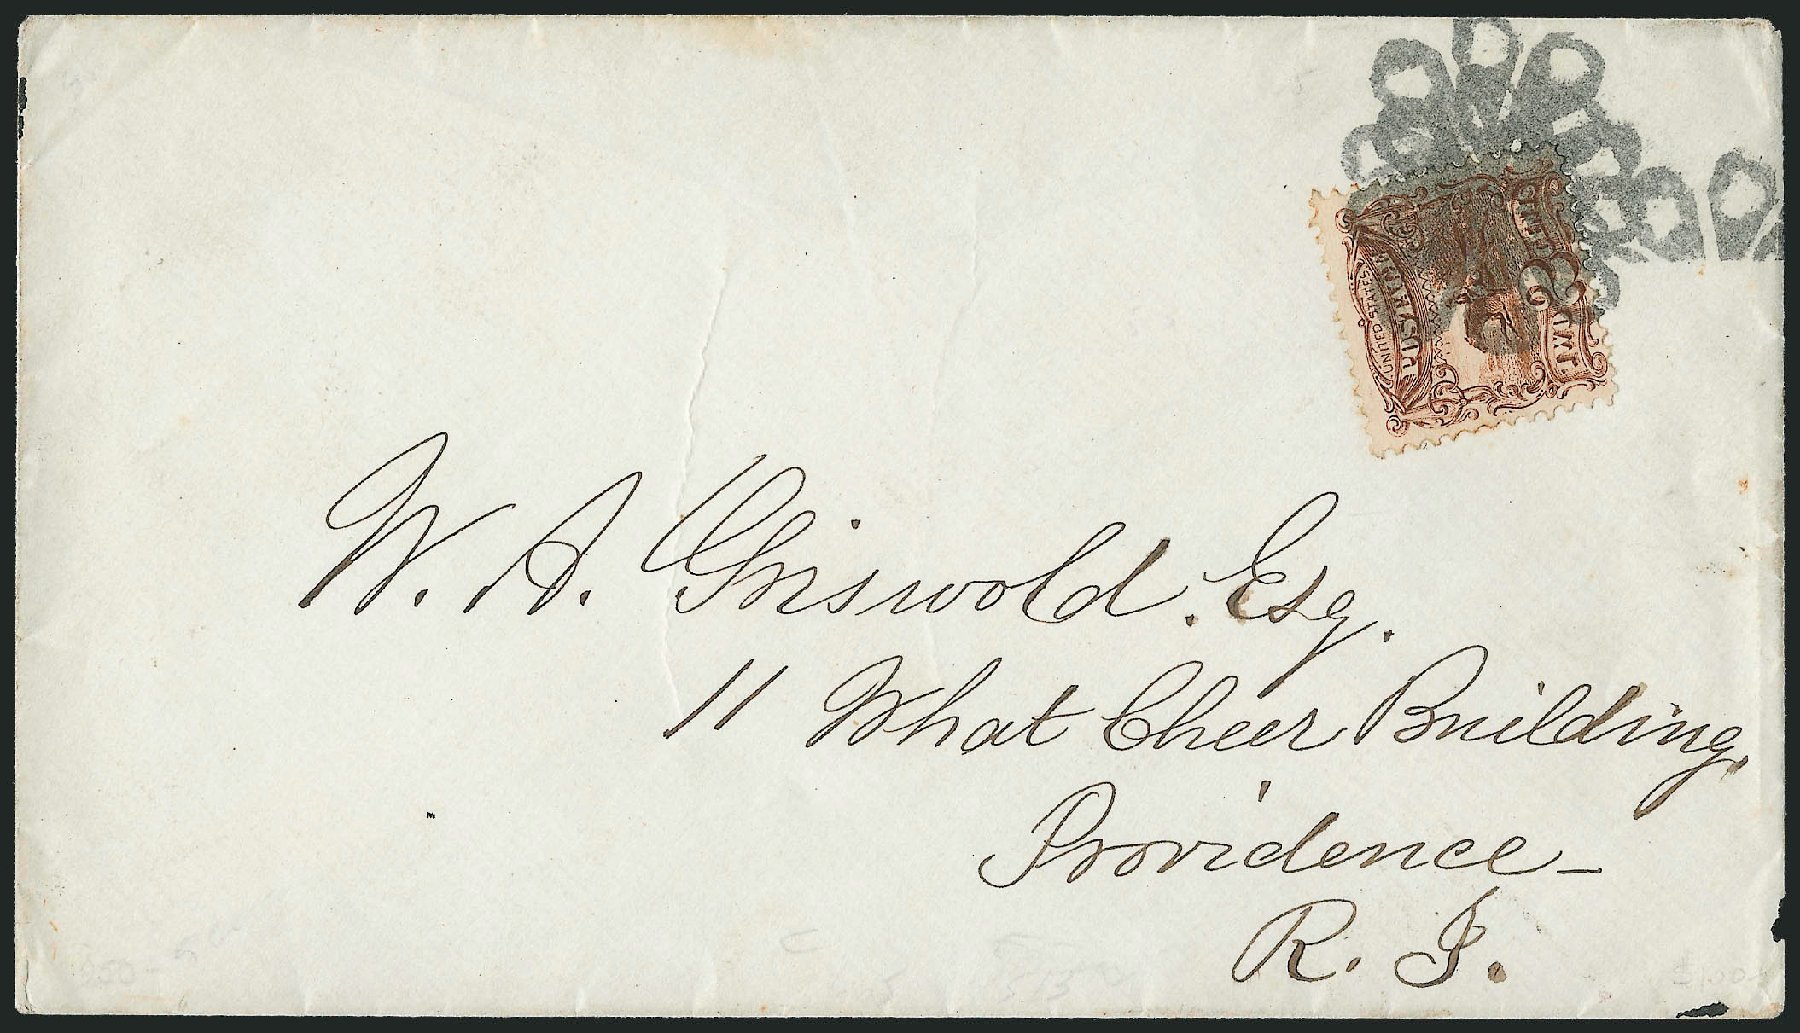 UNITED STATES
POSTAGE
TWO CENTS
2
W. A. Griswold. Esq.
11 What Cheer Building,
Providence_
R. I.